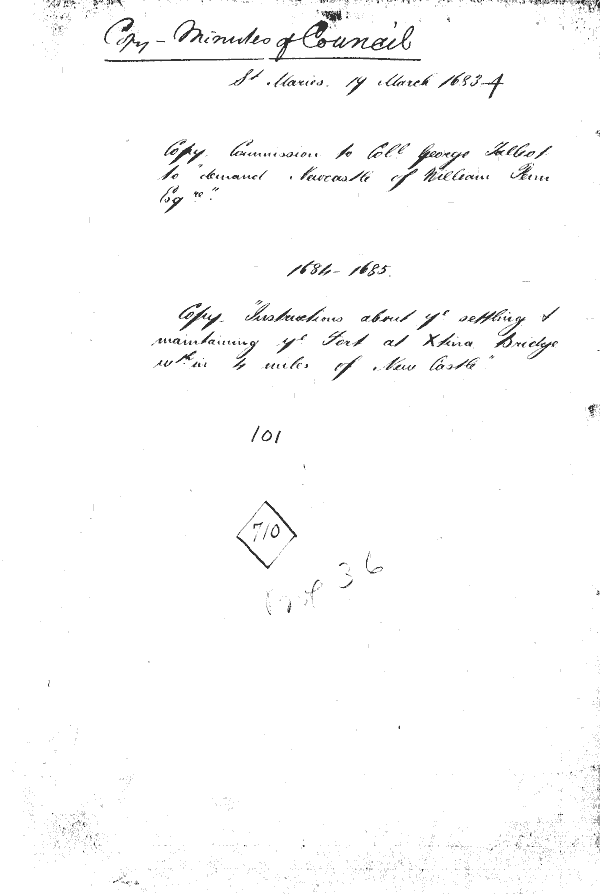 Copy - Minutes of Council
St Maries. 17 March 1683-4
Copy. Commission to Coll George Talbot
to "demand Newcastle of William Penn
Esqre".
1684 - 1685.
Copy. "Instructions about ye settling &
maintaining ye Fort at Xtina Bridge
wthin 4 miles of New Castle"
101
710
36